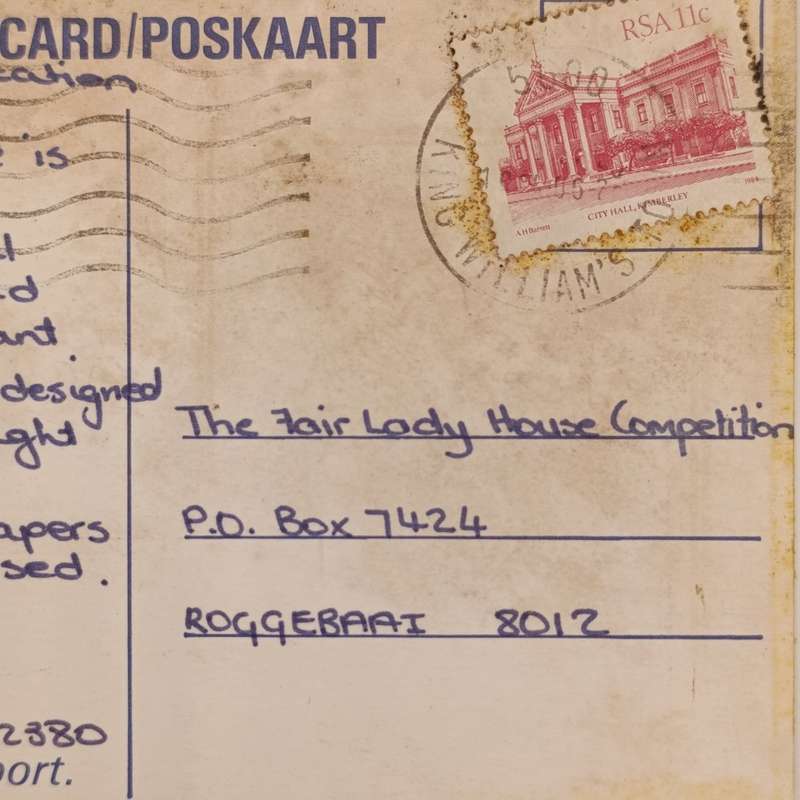 CARD/POSKAART
RSA 11c
CITY HALL, KIMBERLEY
A H Barrett
1984
KING WILLIAM'S
is
designed
The Fair Lady House Competition
P.O. Box 7424
apers
sed.
ROGGEBAAI 8012
2380
ort.